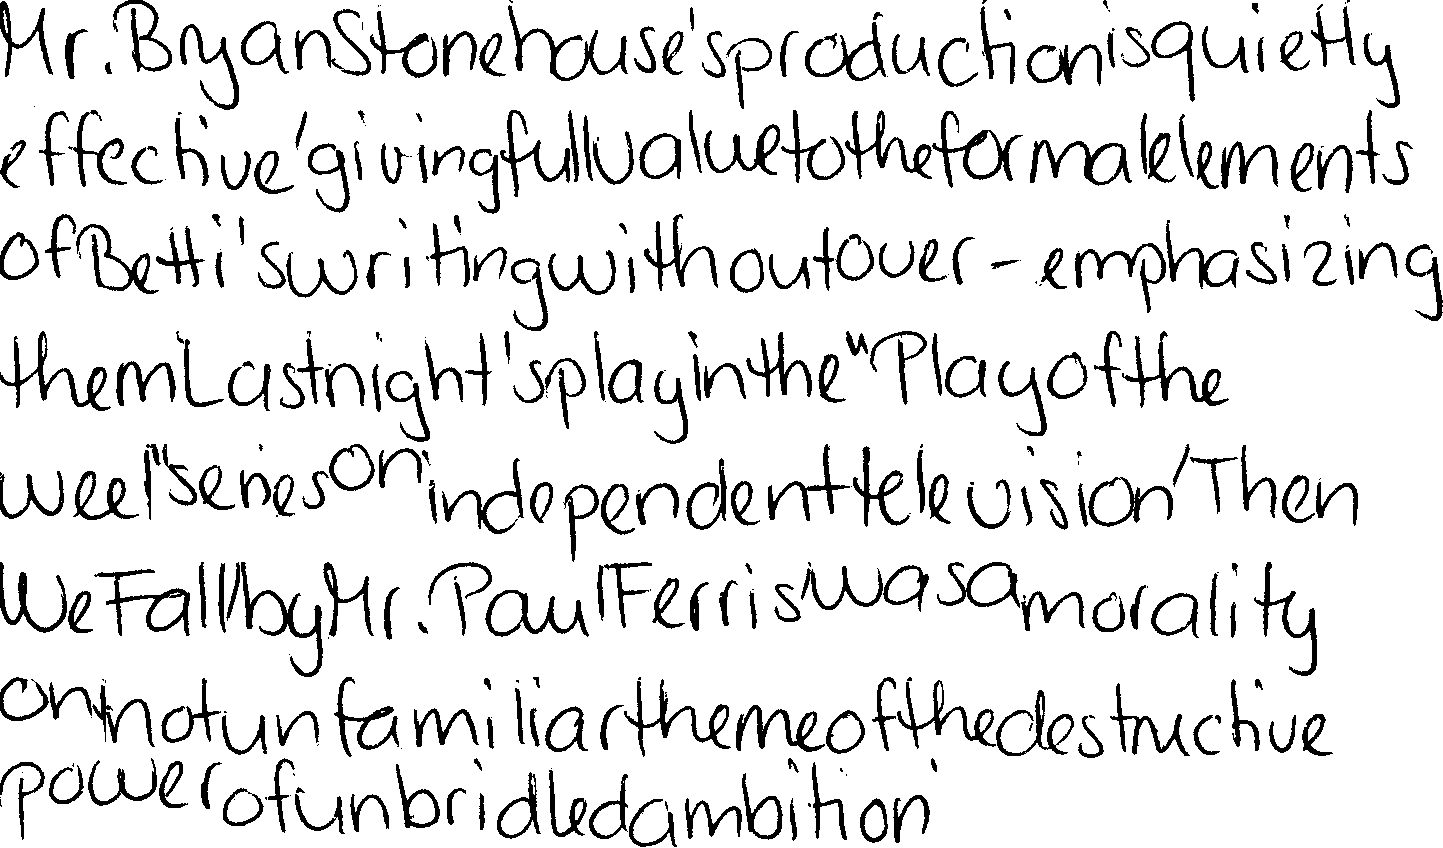 Mr. Bryan Stonehouse's production is quietly
effective, giving full value to the formal elements
of Betti's writing without over-emphasizing
them Last night's play in the "Play of the
week" series on independent television, Then
We Fall, by Mr. Paul Ferris, was a morality
on the not unfamiliar theme of the destructive
power of unbridled ambition